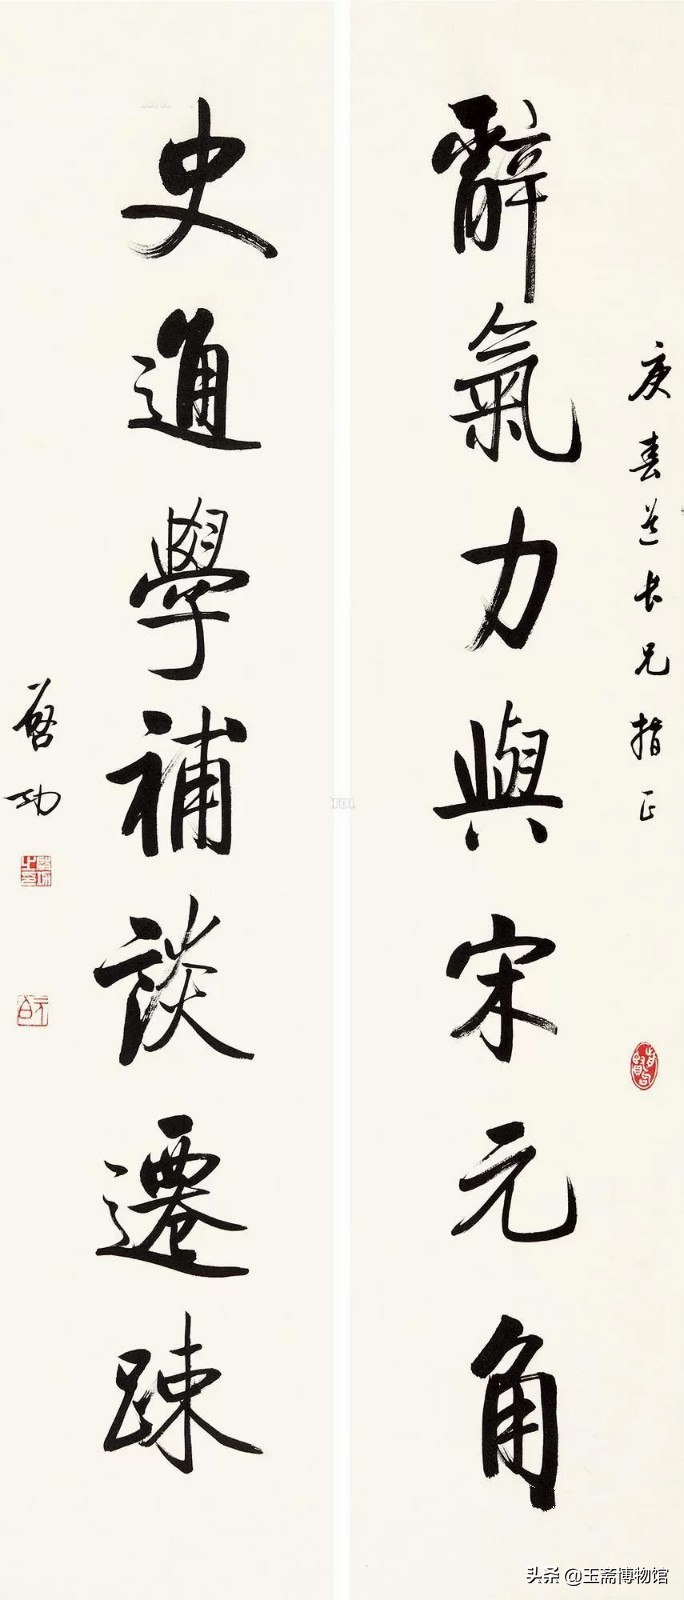 庚春道长兄指正
辭氣力與宋元角
史通學補談遷疎
啓功
头条 @玉斋博物馆